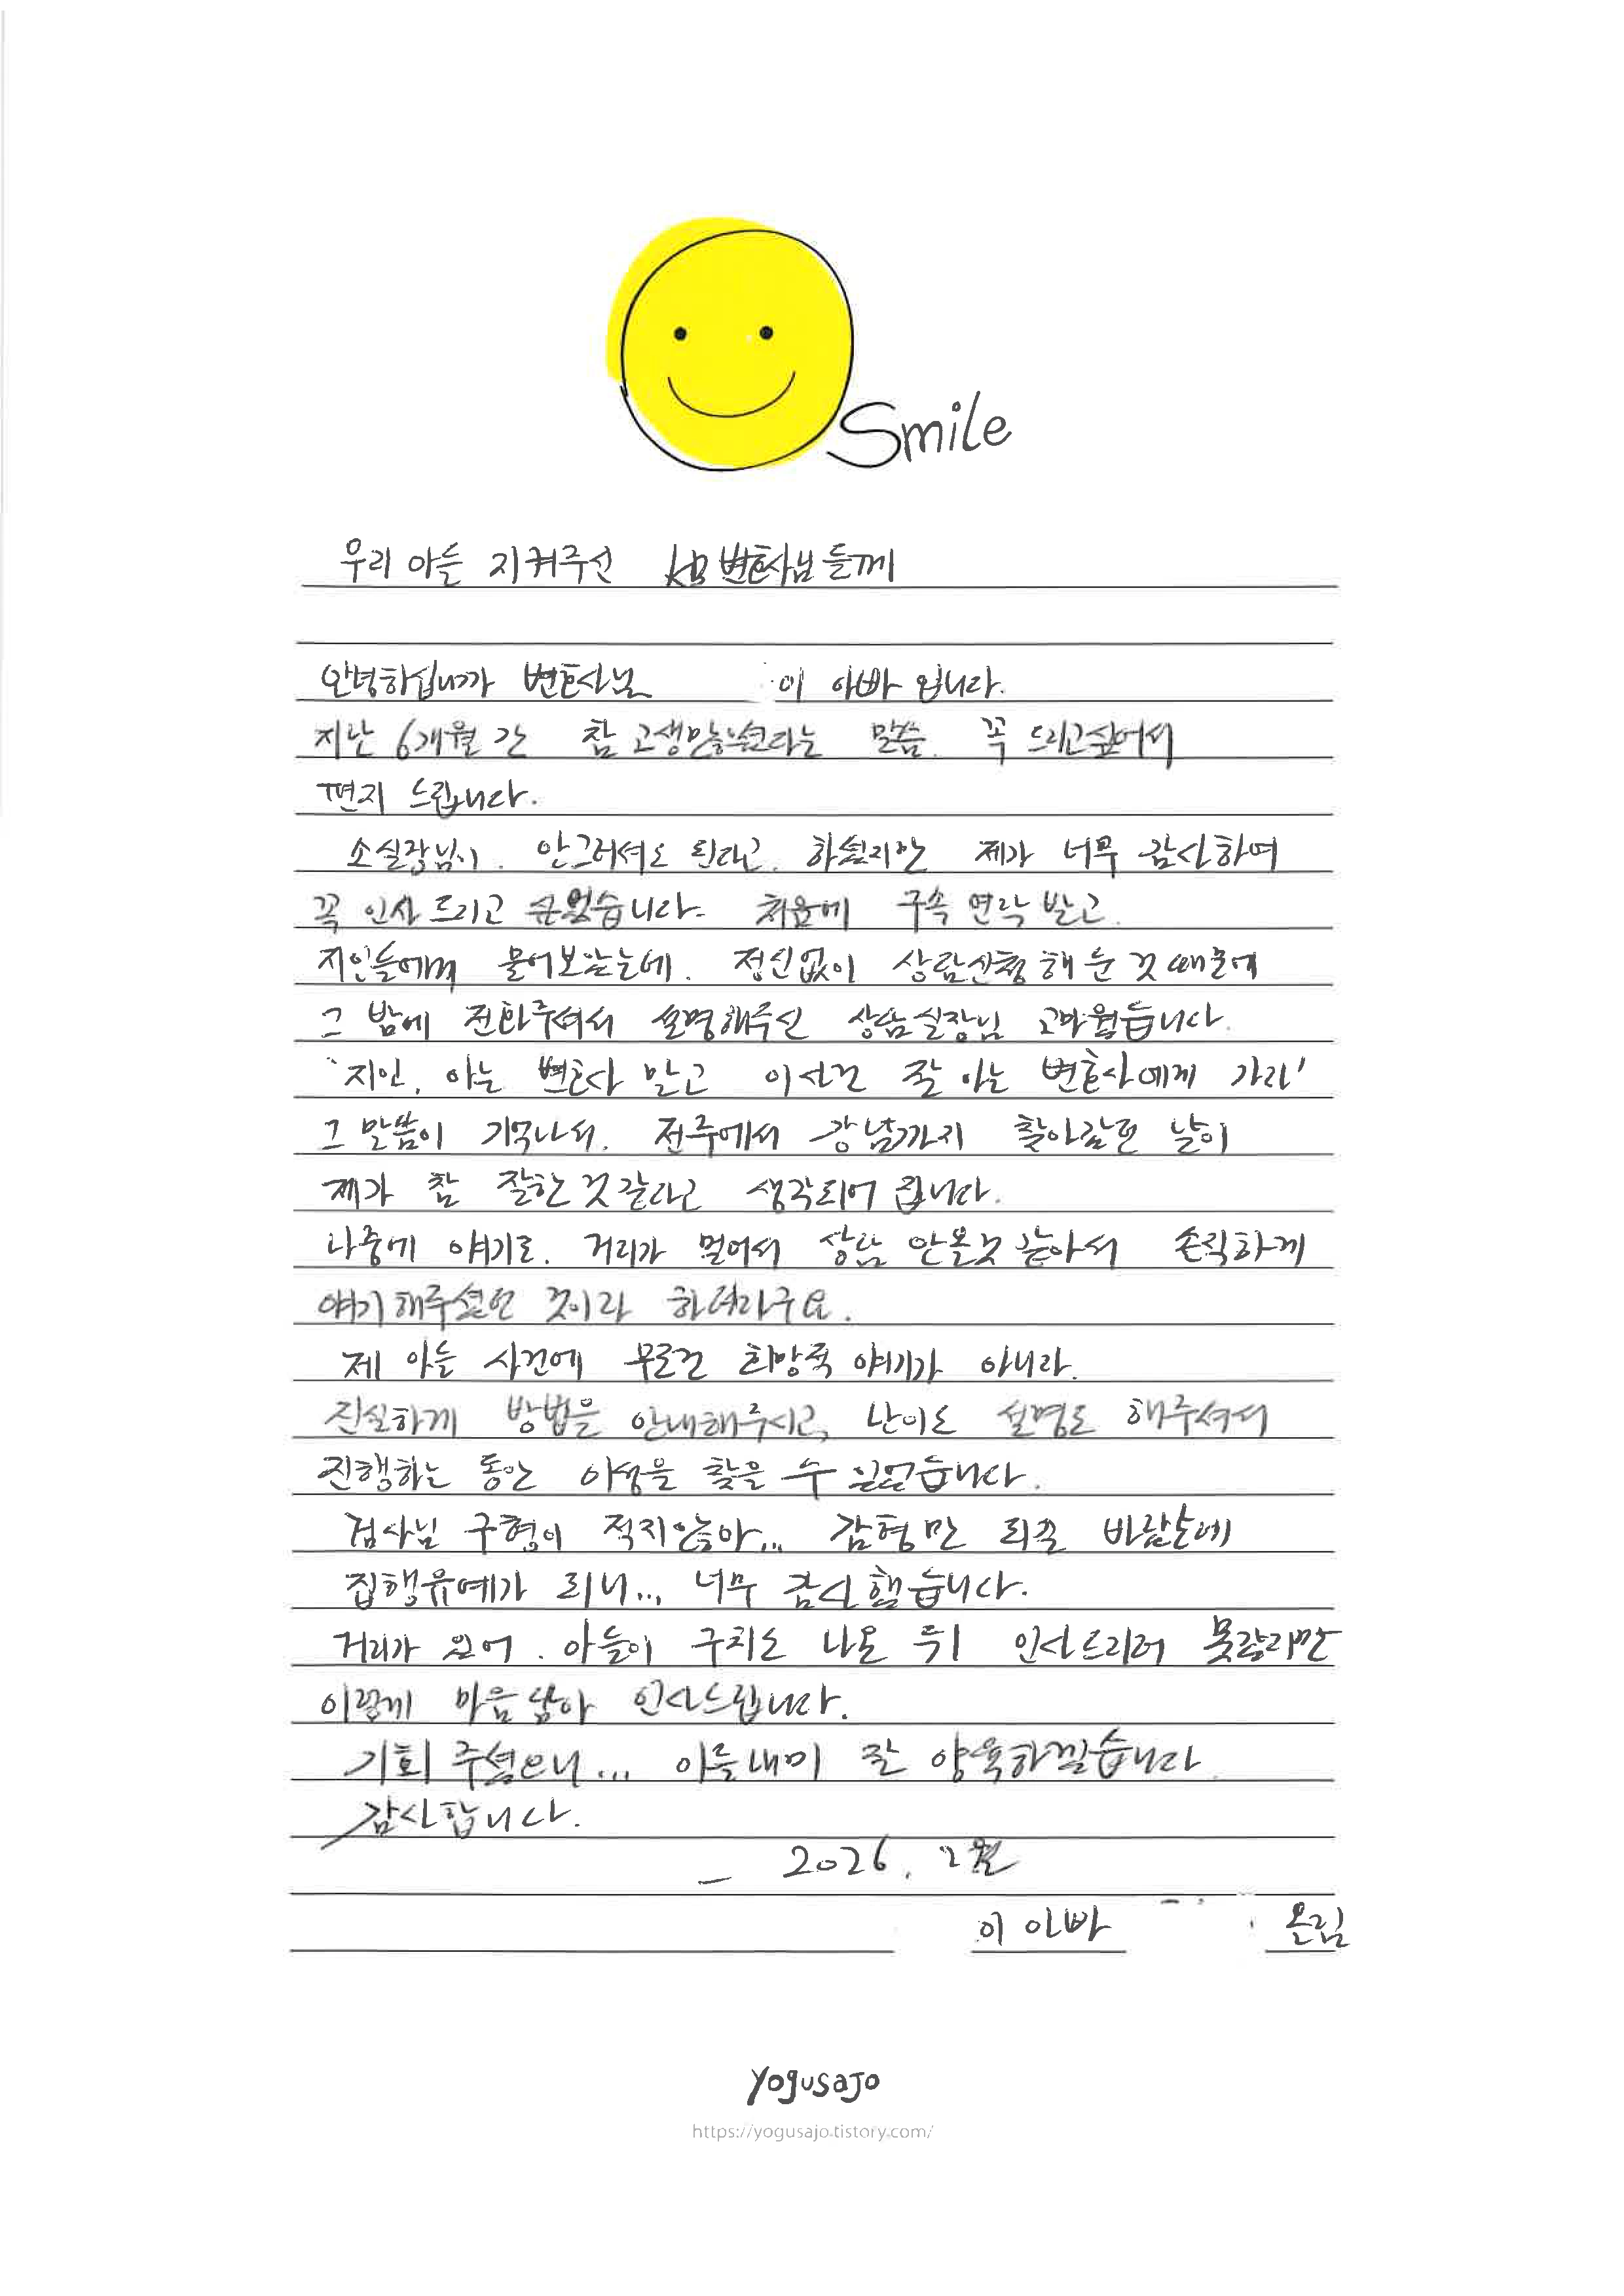 Smile
우리 아들 지켜주신 KB 변호사님들께
안녕하십니까 변호사님 이 아빠 입니다.
지난 6개월 간 참 고생많으셨다는 말씀. 꼭 드리고싶어서
편지 드립니다.
소실장님이. 안그러셔도 된다고. 하셨지만 제가 너무 감사하여
꼭 인사 드리고 싶었습니다. 처음에 구속 연락 받고.
지인들에게 물어보았는데. 정신없이 상담신청 해 둔 것 때문에
그 밤에 전화주셔서 설명해주신 상담실장님 고마웠습니다.
'지인, 아는 변호사 말고 이 사건 잘 아는 변호사에게 가라'
그 말씀이 기억나서. 전주에서 강남까지 찾아갔던 날이
제가 참 잘한 것 같다고 생각되어 집니다.
나중에 얘기로. 거리가 멀어서 상담 안올것 같아서 솔직하게
얘기해주셨던 것이라 하더라구요.
제 아들 사건에 무조건 희망적 얘기가 아니라.
진실하게 방법을 안내해주시고, 난이도 설명도 해주셔서
진행하는 동안 이성을 찾을 수 있었습니다.
검사님 구형이 적지않아... 감형만 되길 바랐는데
집행유예가 되니... 너무 감사했습니다.
거리가 있어. 아들이 구치소 나온 뒤 인사드리러 못갔지만
이렇게 마음 담아 인사드립니다.
기회 주셨으니... 아들내미 잘 양육하겠습니다.
감사합니다.
2026. 2월
이 아빠 올림
yogusajo
https://yogusajo.tistory.com/